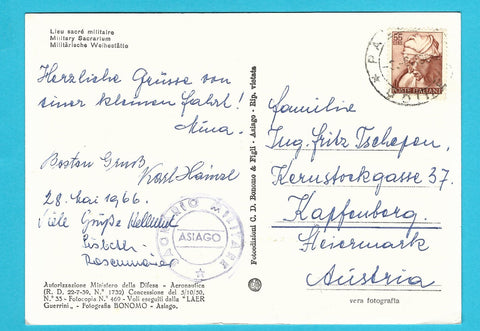 Lieu sacré militaire
Military Sacrarium
Militärische Weihestätte
Herzliche Grüsse von
einer kleinen Fahrt!
Nina.
Besten Gruß
Karl
28. Mai 1966.
Viele Grüße Hellmut
Lisbeth
Rosenmaier
SACRARIO MILITARE
ASIAGO
Autorizzazione Ministero della Difesa - Aeronautica
(R. D. 22-7-39, N.° 1730) Concessione del 5/10/50,
N.° 35 - Fotocopia N.° 469 - Voli eseguiti dalla "LAER
Guerrini" - Fotografia BONOMO - Asiago.
Fotoedizioni C. D. Bonomo & Figli - Asiago - Rip. vietata
55
POSTE ITALIANE
Familie
Ing. Fritz Tschepen,
Kernstockgasse 37.
Kapfenberg.
Steiermark
Austria
vera fotografia